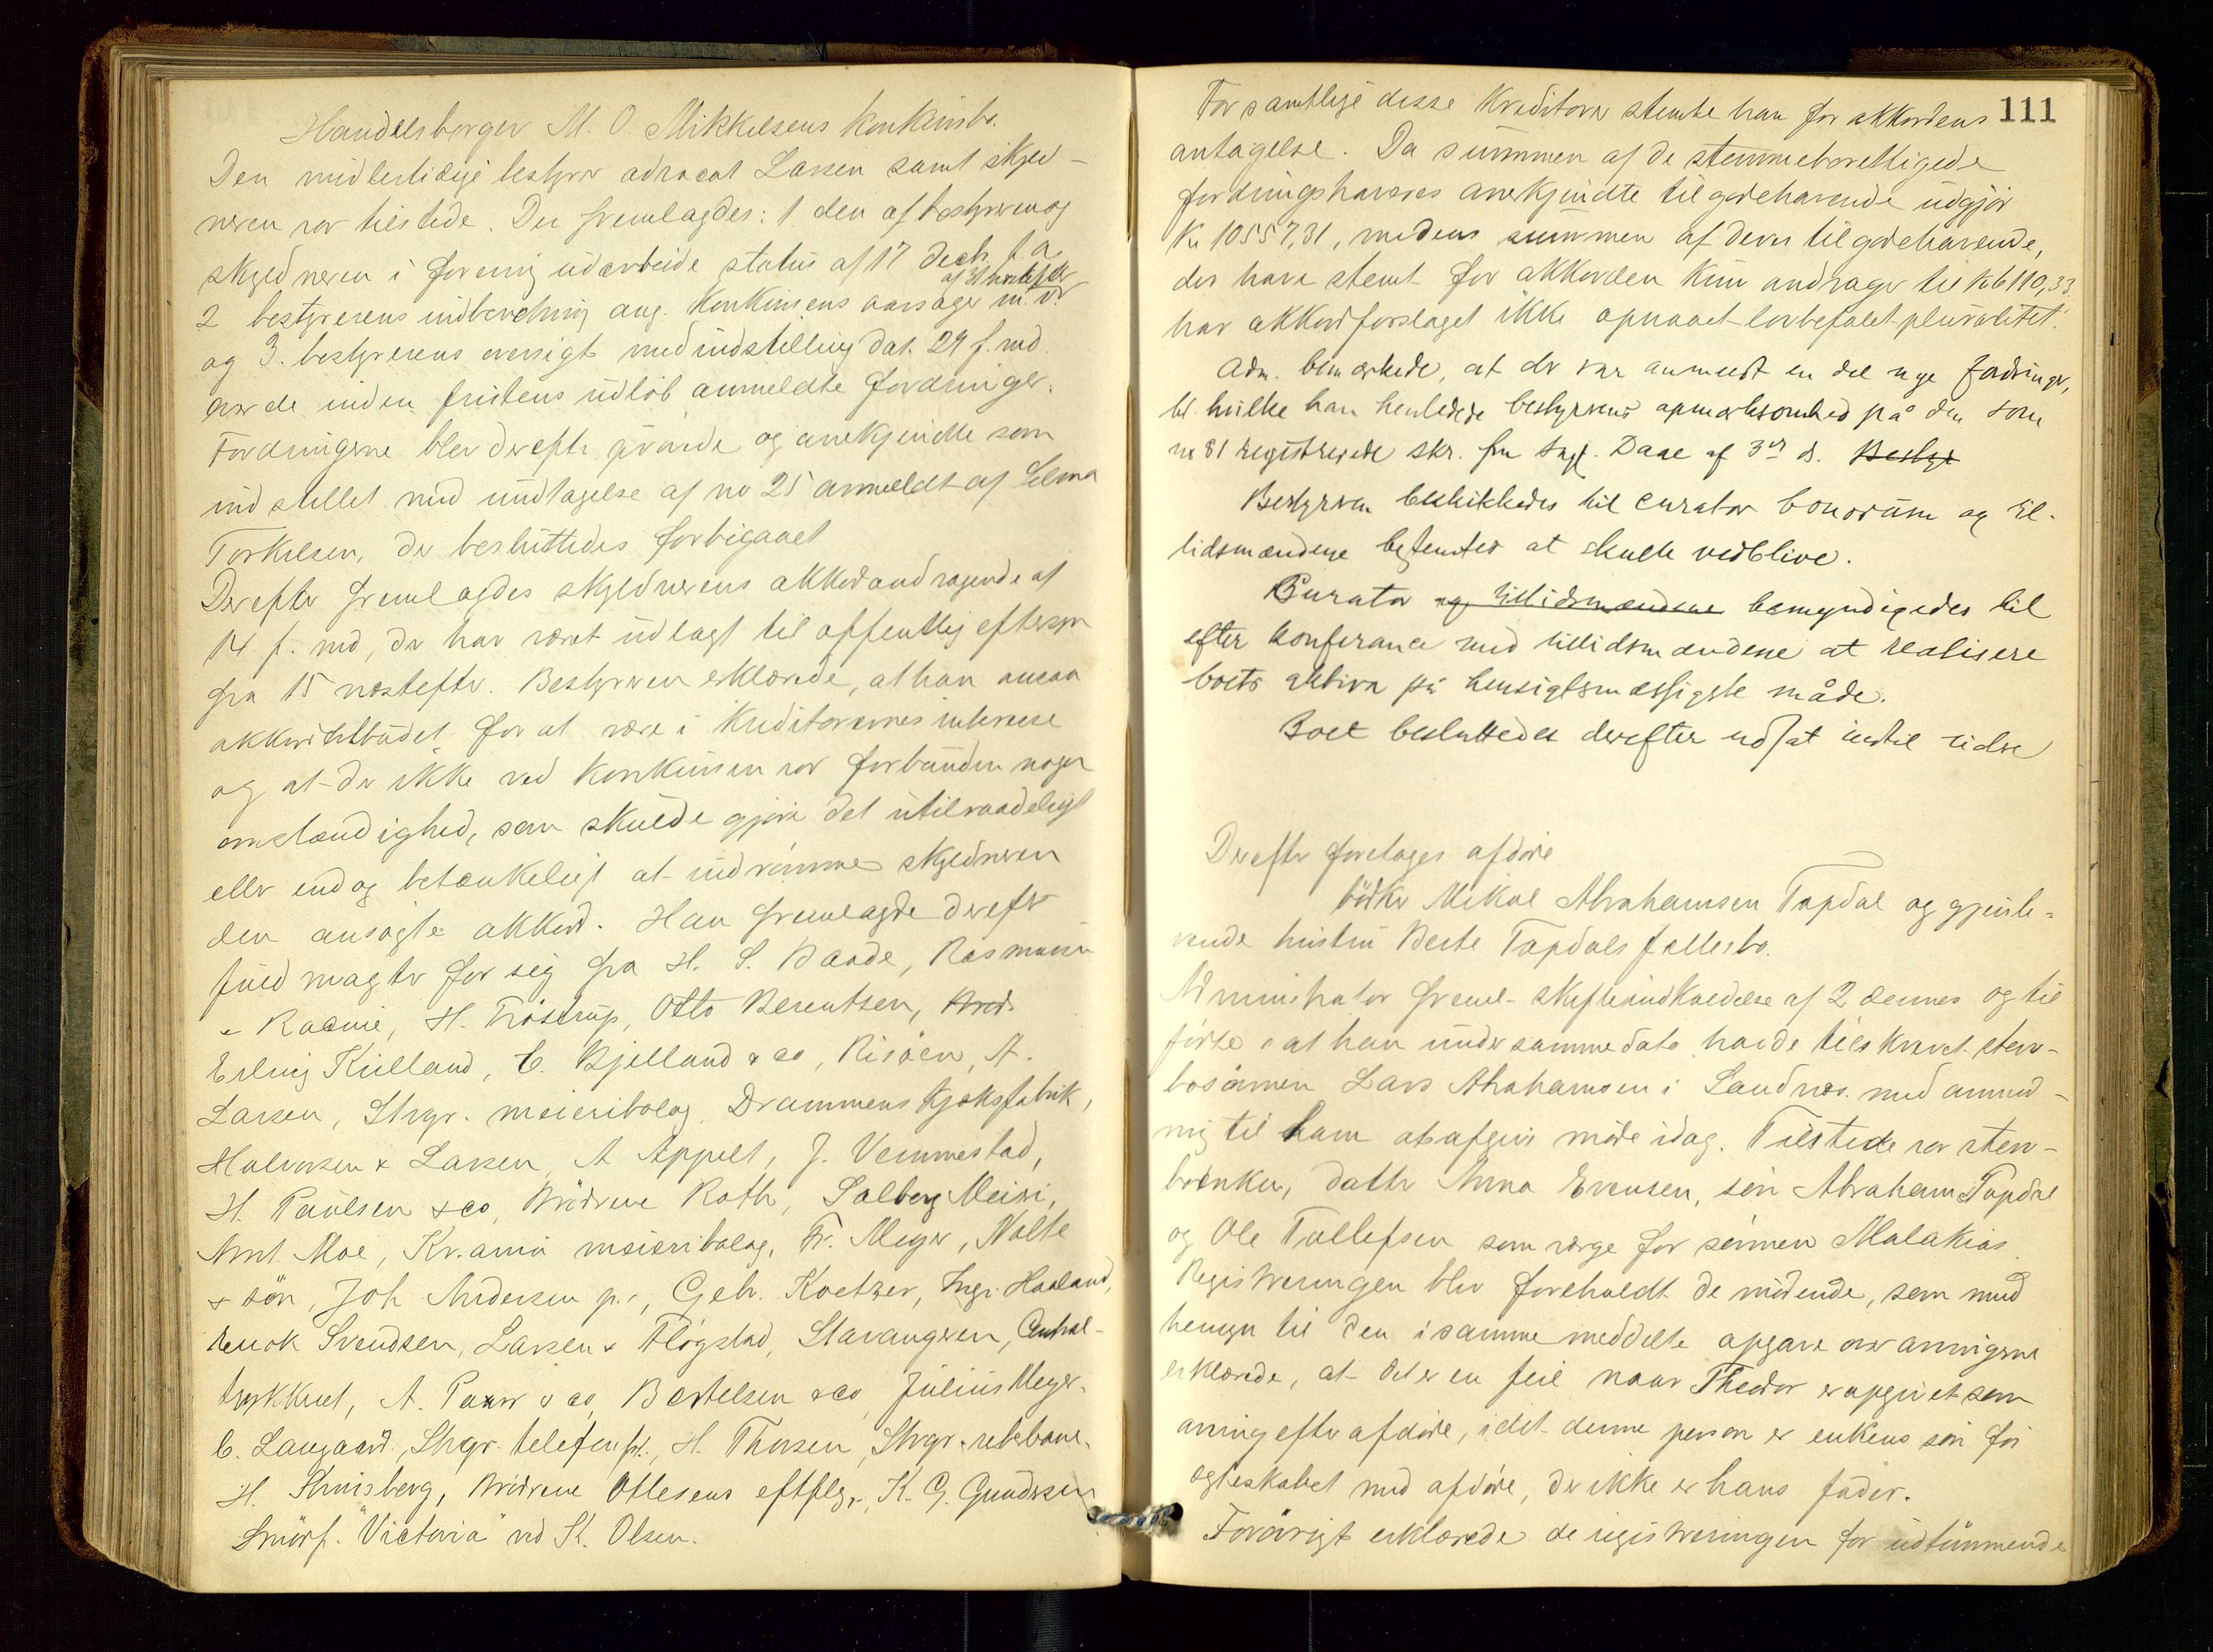 Handelsborger M. O. Mikkelsens konkursbo.
Den midlertidige bestyrer advocat Larsen samt skyld-
neren var tilstede. Der fremlagdes: 1 den af bestyreren og
skyldneren i forening udarbeide status af 17 decb. f. a.
af 31 næstefter
2 bestyrerens indberetning ang. Konkursens aarsager m. v.
og 3. bestyrerens oversigt med indstilling dat. 29 f. md.
over de inden fristens udløb anmeldte fordringer.
Fordringerne blev derefter prøvede og anerkjendte som
indstillet med undtagelse af no 25 anmeldt af Selma
Torkelsen, der besluttedes forbigaaet
Derefter fremlagdes skyldnerens akkordandragende af
14 f. md, der har været udlagt til offentlig eftersyn
fra 15 næstefter. Bestyreren erklærede, at han ansaa
akkordtilbudet for at være i Kreditorernes interesse
og at der ikke ved konkursen var forbunden nogen
omstændighed, som skulde gjøre det utilraadeligt
eller endog betænkeligt at indrømme skyldneren
den ansøgte akkord. Han fremlagde derefter
fuldmagter for sig fra H. S. Baade, Rasmussen
& Racine, H. Trøstrup, Otto Berentsen, Brd.
Erling Kielland, C. Bjelland & co, Risøen, A.
Larsen, Stvgr. meieribolag, Drammens Kjæksfabrik,
Halvorsen & Larsen, A Appelt, J. Vemmestad,
H. Paulsen & co, Brødrene Roth, Salberg Meieri,
Arnt Moe, Kr.ania meieribolag, Fr. Meyer, Nolte
& søn, Joh Andersen p.r, Gebr. Koetzer, Ingr. Haaland,
Enok Svendsen, Larsen & Fløgstad, Stavangeren, Central-
trykkeriet, A. & co, Bertelsen & co, Julius Meyer.
C. Langaard, Stvgr. telefonf., H. Thorsen, Stvgr. rebebane.
H. Brødrene Ottesens eftflgr., K. G. Gundersen
Smørf. "Victoria" ved K. Olsen.
111
For samtlige disse Kreditorer stemte han for akkordens
antagelse. Da summen af de stemmeberettigede
fordringshaveres anerkjendte tilgodehavende udgjør
Kr 10557,31, medens summen af deres tilgodehavende,
der have stemt for akkorden kun andrager til Kr 6110,33.
har akkordforslaget ikke opnaaet lovbefalet pluralitet.
Adm. bemærkede, at der var anmeldt en del nye fordringer,
bl. hvilke han henledede bestyrerens opmærksomhed på den som
no 81 registrerede skr. fra sagf. Daae af 3die ds. Bestyr
Bestyreren beskikkedes til curator bonorum og til-
lidsmændene bestemtes at skulle vedblive.
Curator og tillidsmændene bemyndigedes til
efter konferance med tillidsmændene at realisere
boets aktiva på hensigtsmæssigste måde.
Boet besluttedes derefter udsat indtil videre
Derefter foretoges afdøde
bødker Mikal Abrahamsen Topdal og gjenle-
vende hustru Berte Topdals fællesbo.
Administrator freml. skifteindkaldelse af 2 dennes og til
førte at han under samme dato havde tilskrevet sterv-
bosønnen Lars Abrahamsen i Sandnæs med anmod-
ning til ham at afgive møde idag. Tilstede var sterv-
boenken, datter Anna Evensen, søn Abraham Topdal
og Ole Tollefsen som værge for sønnen Malakias.
Registreringen blev foreholdt de mødende, som med
hensyn til den i samme meddelte opgave over arvingerne
erklærede, at det er en feil naar Theodor er opgivet som
arving efter afdøde, idet denne person er enkens søn før
egteskabet med afdøde, der ikke er hans fader.
Forøvrigt erklærede de registreringen for udtømmende